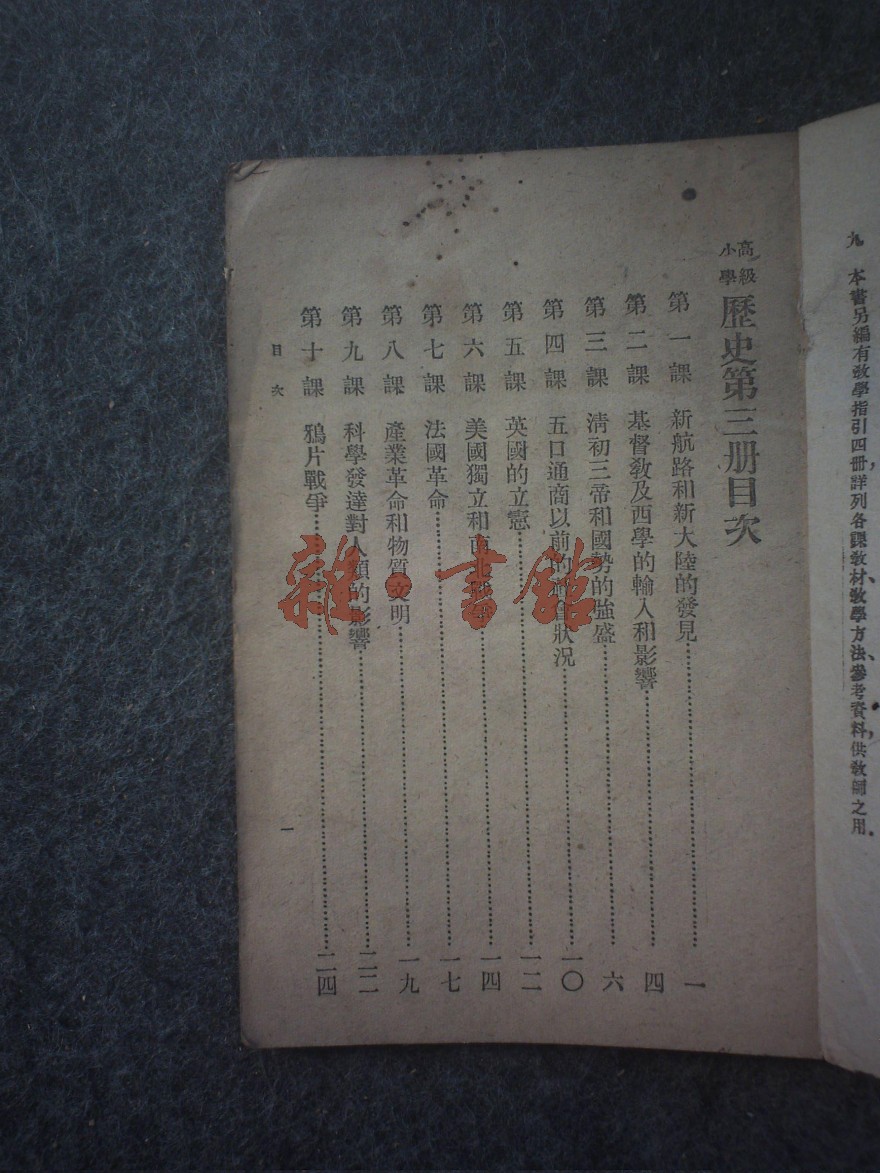 九　本書另編有教學指引四冊，詳列各課教材、教學方法、參考資料，供教師之用．
高級小學 歷史第三册目次
第一課　新航路和新大陸的發見……一
第二課　基督教及西學的輸入和影響……四
第三課　清初三帝和國勢的強盛……六
第四課　五口通商以前的社會狀況……一〇
第五課　英國的立憲……一二
第六課　美國獨立和南北戰爭……一四
第七課　法國革命……一七
第八課　產業革命和物質文明……一九
第九課　科學發達對人類的影響……二二
第十課　鴉片戰爭……二四
目次
一
雜·書館